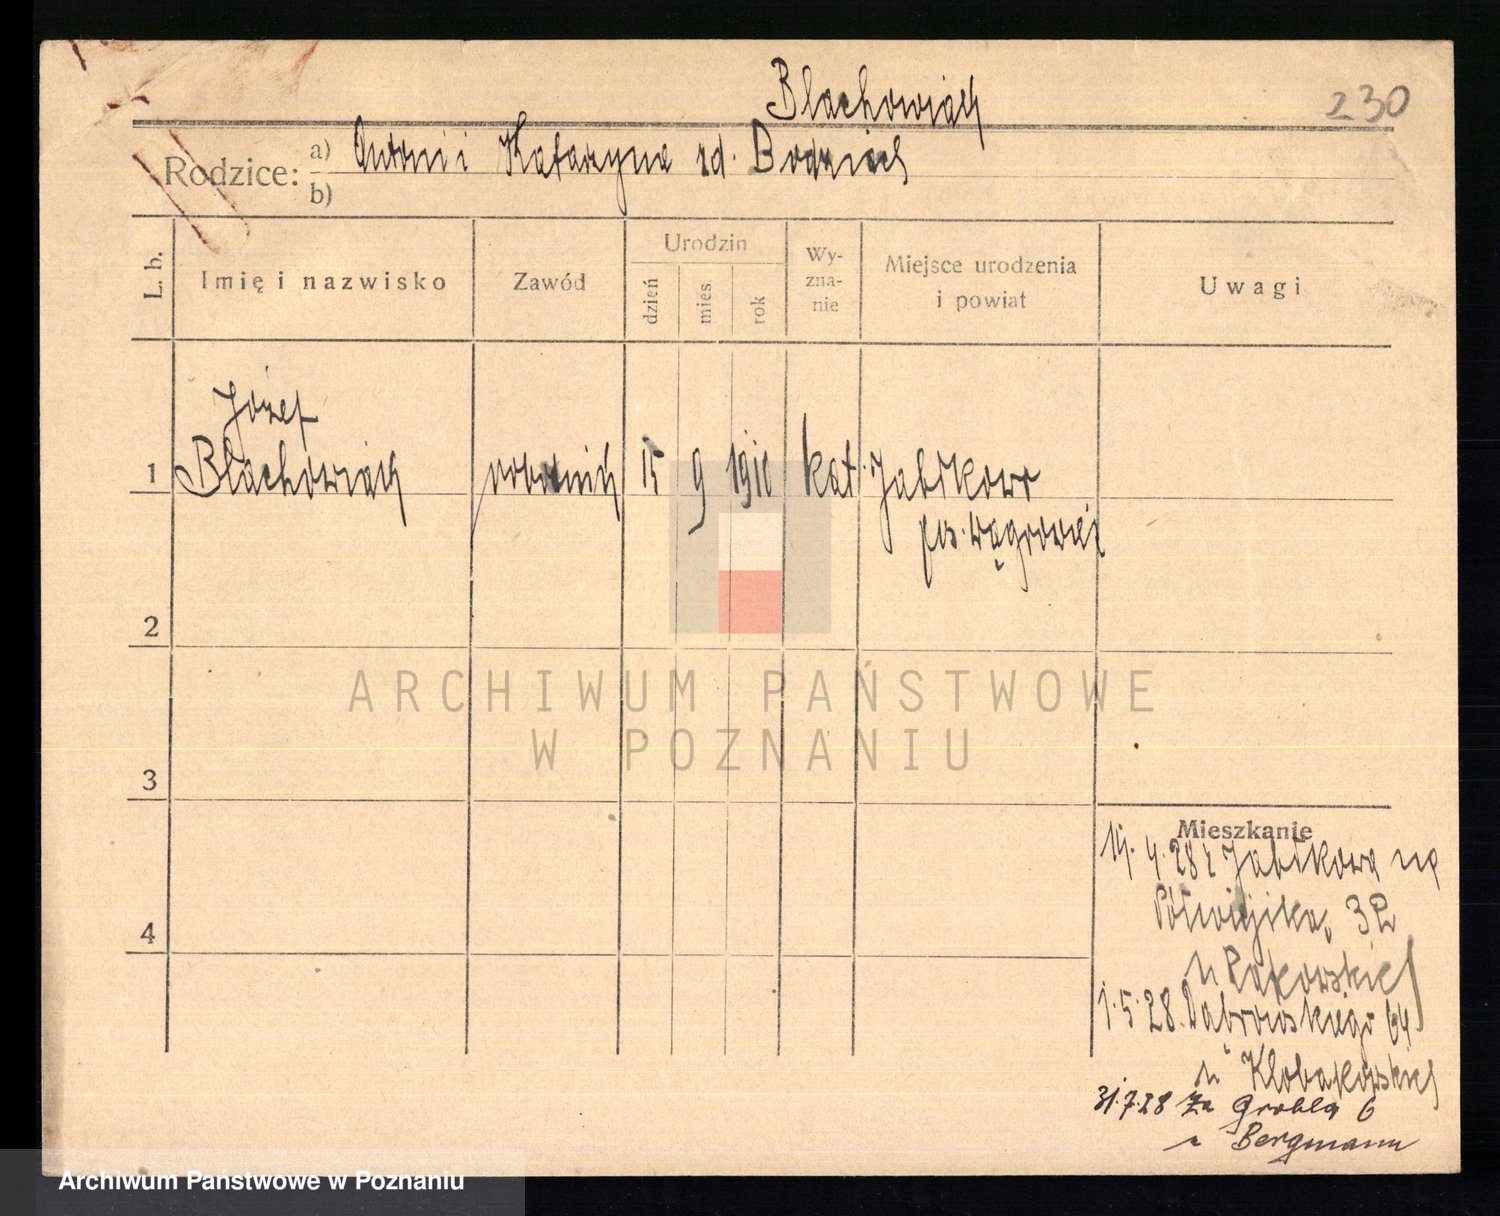 Błachowiak
230
Rodzice: a) Antoni i Katarzyna zd. Bodziach
b)
L. b.
Imię i nazwisko
Zawód
Urodzin
dzień
mies
rok
Wy-
zna-
nie
Miejsce urodzenia
i powiat
Uwagi
Józef
1 Błachowiak robotnik 15 9 1910 kat. Jabłkowo
pow. Wągrowiec
2
3
4
ARCHIWUM PAŃSTWOWE
W POZNANIU
Mieszkanie
4.28 z Jabłkowa na
Półwiejska, 32
u Rakowskich
1.5.28. Dąbrowskiego 64
u
31.7.28 Za Groblą 6
u Bergmann
Archiwum Państwowe w Poznaniu